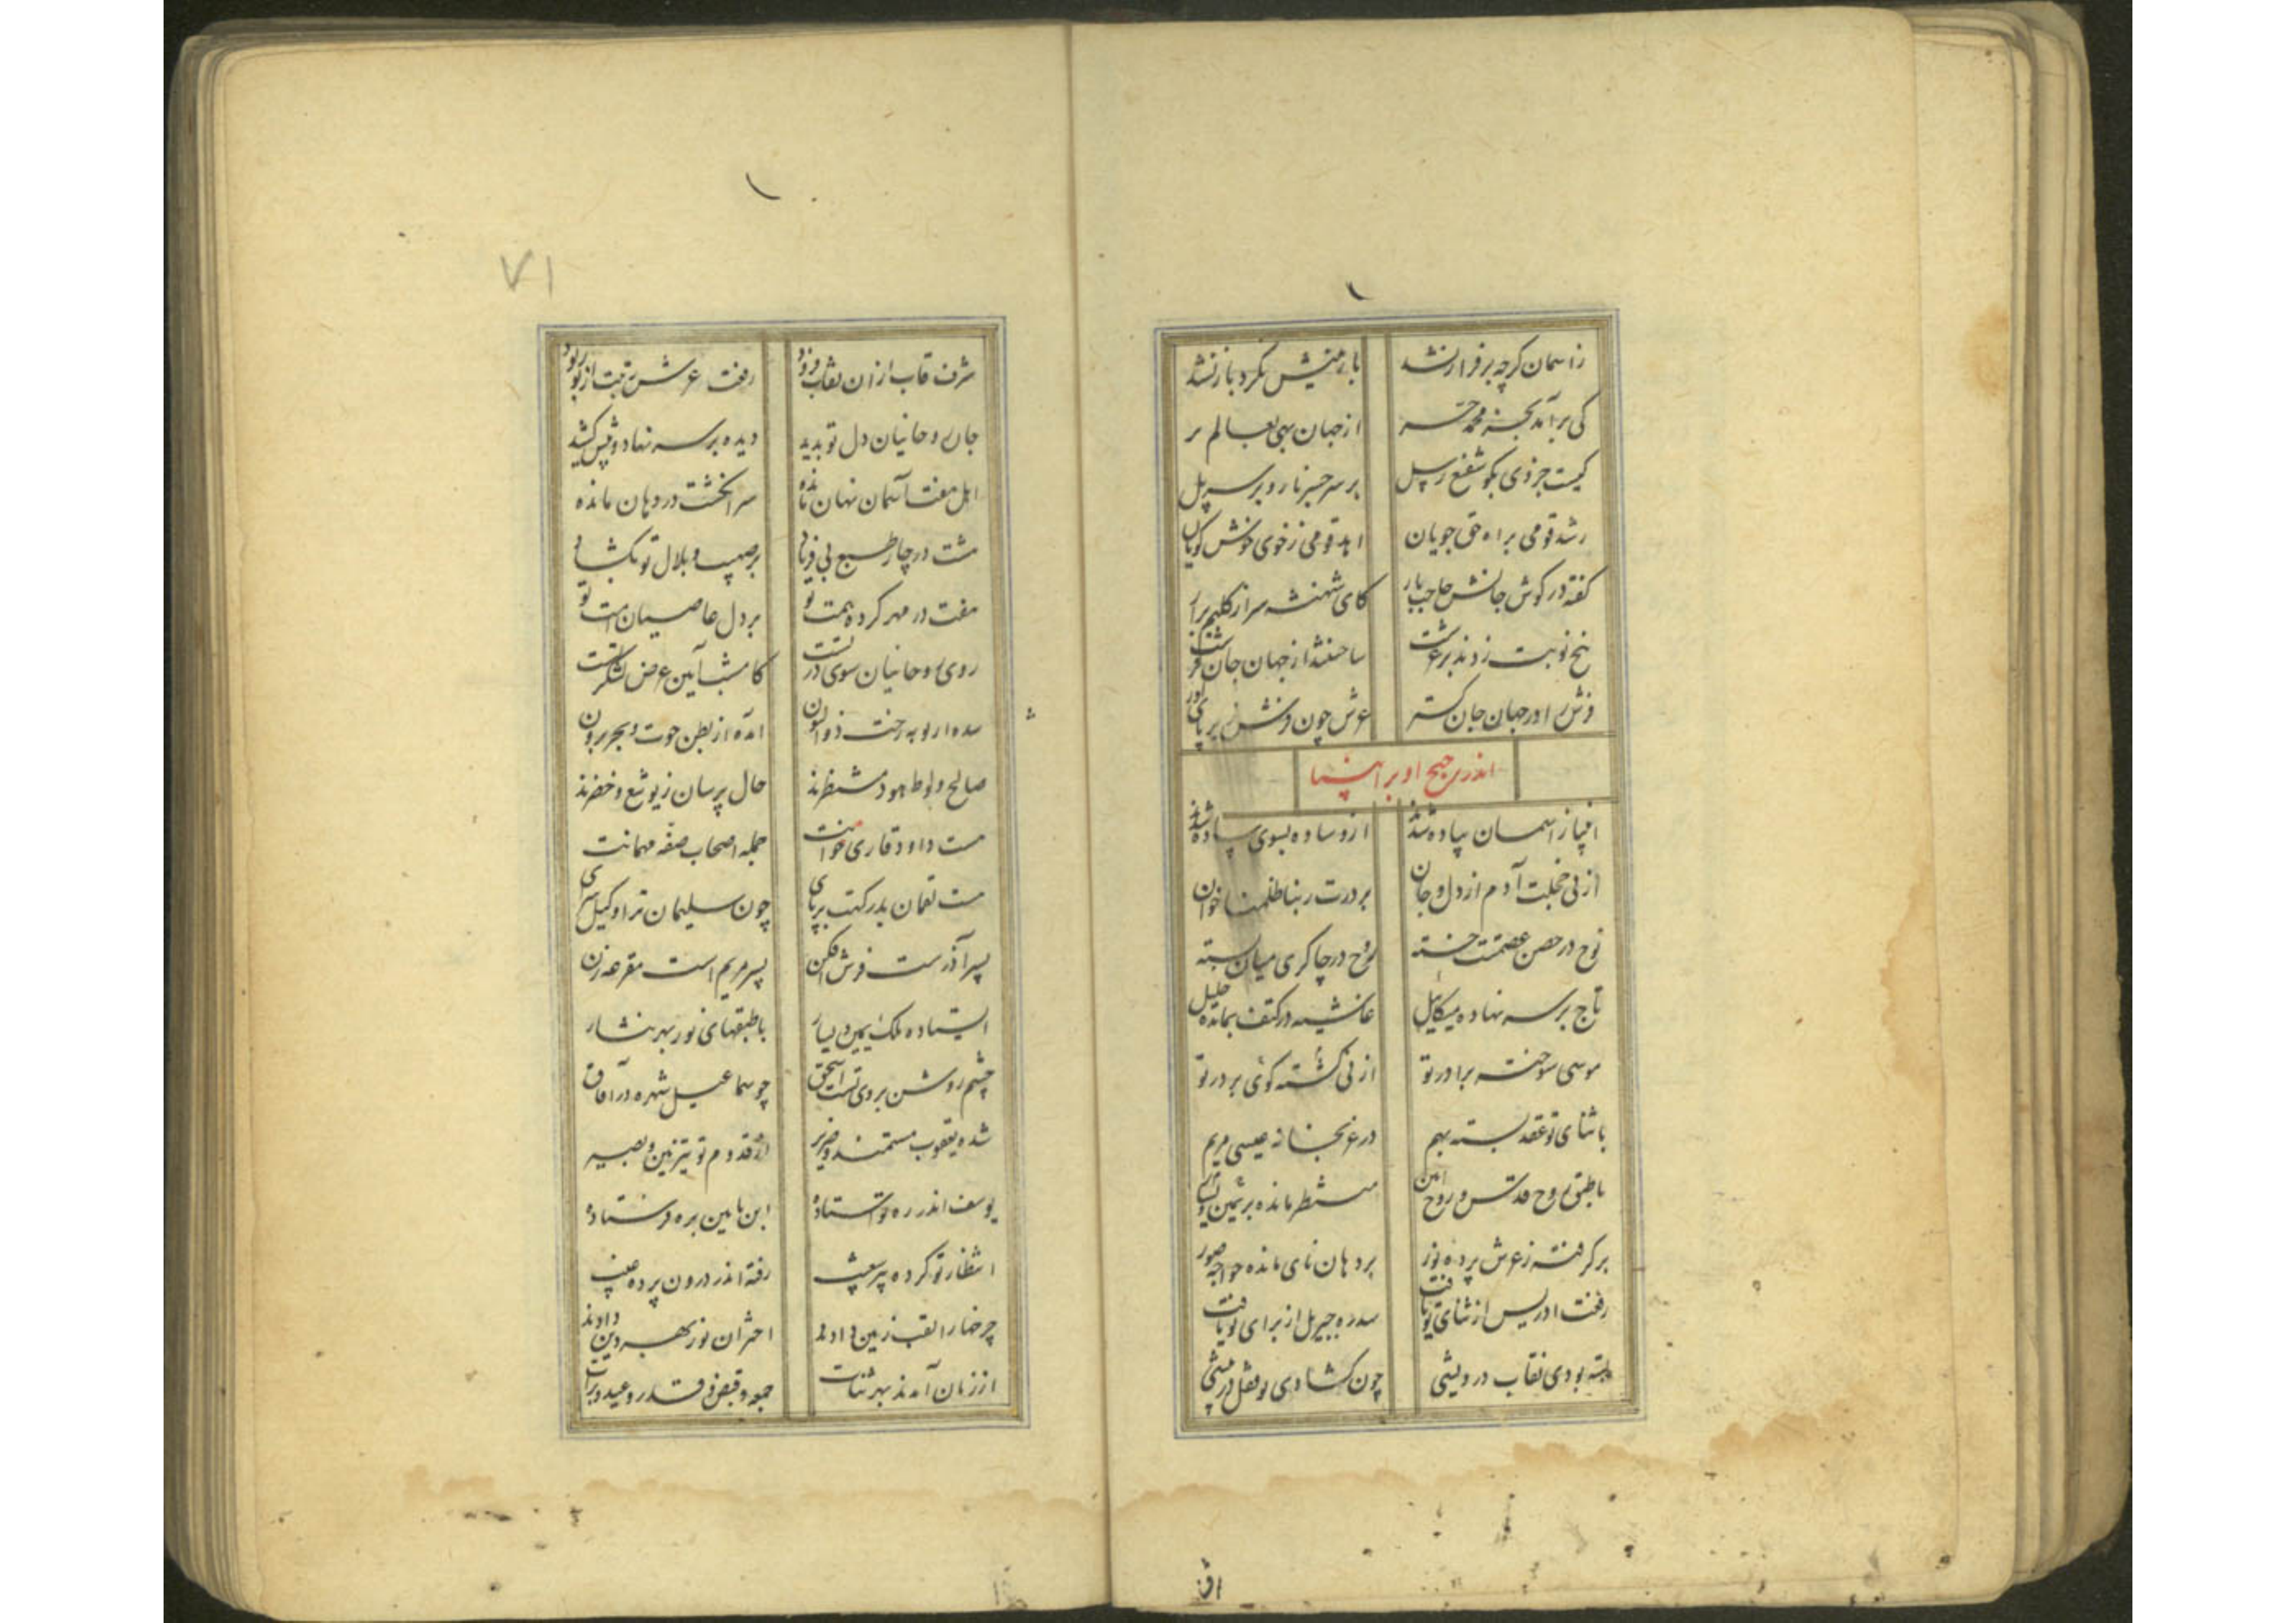 زاسمان کرچه بر فراز نشد بازمینش نکرد باز نشد
کی برآمد بجز محمد حر از جهان بهی بعالم بر
کیست جز وی بکو شفیع رسل بر سر جسر نار و بر سر پل
رشد قومی براه حق جویان اهد قومی زخوی خوش کویان
کفته در کوش جانش حاجب بار کای شهنشه سر از کلیم برآر
پنج نوبت زدند بر عرشت ساختند از جهان جان فرشت
فرش را در جهان جان کستر عرش چون فرش زیر پای آور
اندر ترجیح او بر انبیا
انبیا ز آسمان پیاده شدند از وساده بسوی ساده شدند
از پی خجلت آدم از دل و جان بر درت ربنا ظلمنا خوان
نوح در حصن عصمتت جسته روح در چاکری میان بسته
تاج بر سر نهاده میکائیل غاشیه در کتف بمانده خلیل
موسی سوخته برادر تو ارنی کشته کوی بر در تو
با ثنای تو عقد بسته بهم در غمخانه عیسی مریم
با طبق روح قدس و روح امین منتظر مانده بر
بر کرفته زعرش پرده نور بر دهان نای مانده خواجه صور
رفت ادریس از ثنای تو یافت سدره جبریل از برای تو یافت
بسته بودی نقاب در پیشی چون کشادی تو قفل درویشی
اق
٧١
شرف قاب ازان نقاب فزود رفت عرش رتبت از تو ربود
جان روحانیان دل تو بدید دیده بر سر نهاد و پیش کشید
اهل هفت آسمان نهان مانده سر انکشت در دهان مانده
هشت در چار طبع بی فریاد بر صهیب و بلال تو بکشاد
هفت در مهر کرده همت تو بر دل عاصیان امت تو
روی روحانیان سوی در تست کامشب آیین عرض لشکر تست
آمده از بطن حوت و بحر برون
صالح و لوط و هود منتظرند حال پرسان زیوشع و خضرند
هست داود قاری خوانت جمله اصحاب صفه مهمانت
هست لقمان بدر کهت بر پای چون سلیمان ترا وکیل سرای
پسر آذرست فرش افکن پسر مریم است مقرعه زن
ایستاده ملک یمین و یسار با طبقهای نور بهر نثار
چشم روشن بروی تست اسحق چو سماعیل شهره در آفاق
شده یعقوب مستمند و ضریر از قدوم تو تیزبین و بصیر
یوسف اندر ره تو استاده ابن یامین بره فرستاده
انتظار تو کرده پیر شعیب رفته اندر درون پرده غیب
چرخها را لقب زمین دادند اختران نور بهر دین دادند
از زمان آمدند بهر ثنات جمعه و قبض و قدر و عید و برات